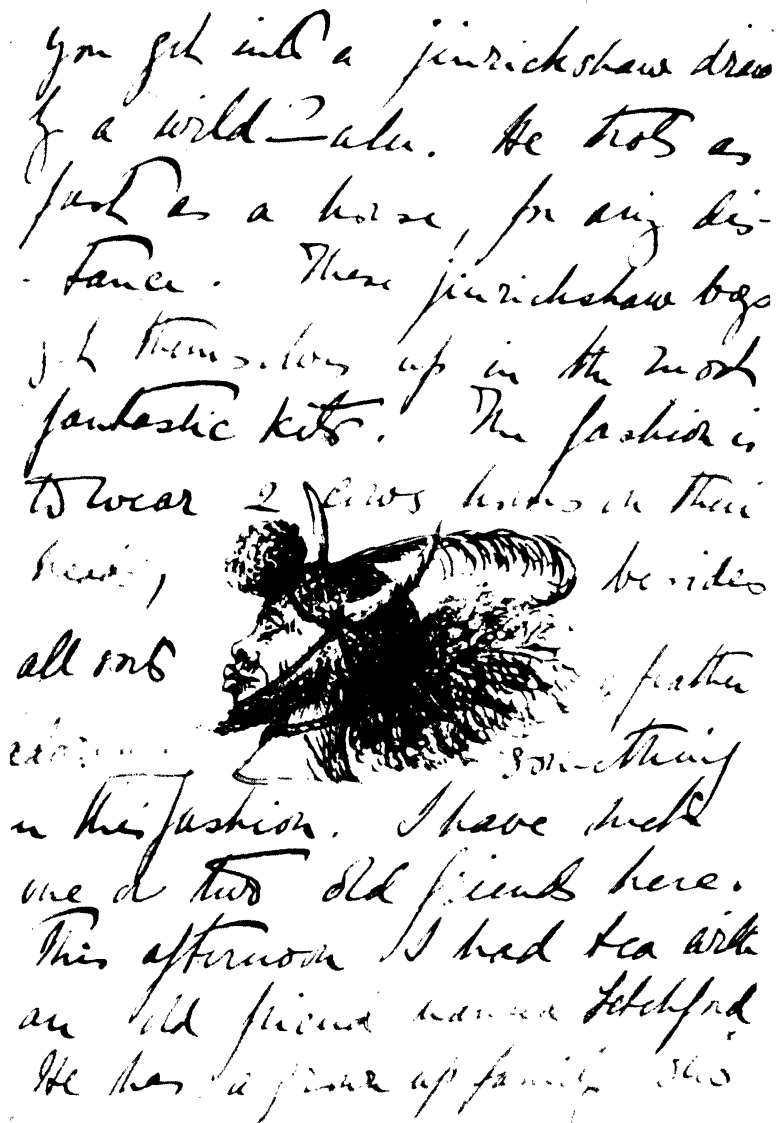 you get into a jinrickshaw draw
by a wild Zulu. He trots as
fast as a horse, for any dis-
- tance. These jinrickshaw boys
get themselves up in the most
fantastic kits. The fashion is
to wear 2 cows horns on their
head, besides
all sorts of feather
something
in this fashion. I have met
one or two old friends here.
This afternoon I had tea with
an old friend named Letchford
He has a grown up family who